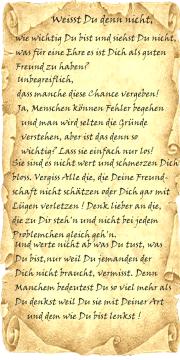 Weisst Du denn nicht,
wie wichtig Du bist und siehst Du nicht,
was für eine Ehre es ist Dich als guten
Freund zu haben?
Unbegreiflich,
dass manche diese Chance vergeben!
Ja, Menschen können Fehler begehen
und man wird selten die Gründe
verstehen, aber ist das denn so
wichtig? Lass sie einfach nur los!
Sie sind es nicht wert und schmerzen Dich
bloss. Vergiss Alle die, die Deine Freund-
schaft nicht schätzen oder Dich gar mit
Lügen verletzen! Denk lieber an die,
die zu Dir steh'n und nicht bei jedem
Problemchen gleich geh'n.
Und werte nicht ab was Du tust, was
Du bist, nur weil Du jemanden der
Dich nicht braucht, vermisst. Denn
Manchem bedeutest Du so viel mehr als
Du denkst weil Du sie mit Deiner Art
und dem wie Du bist lenkst!